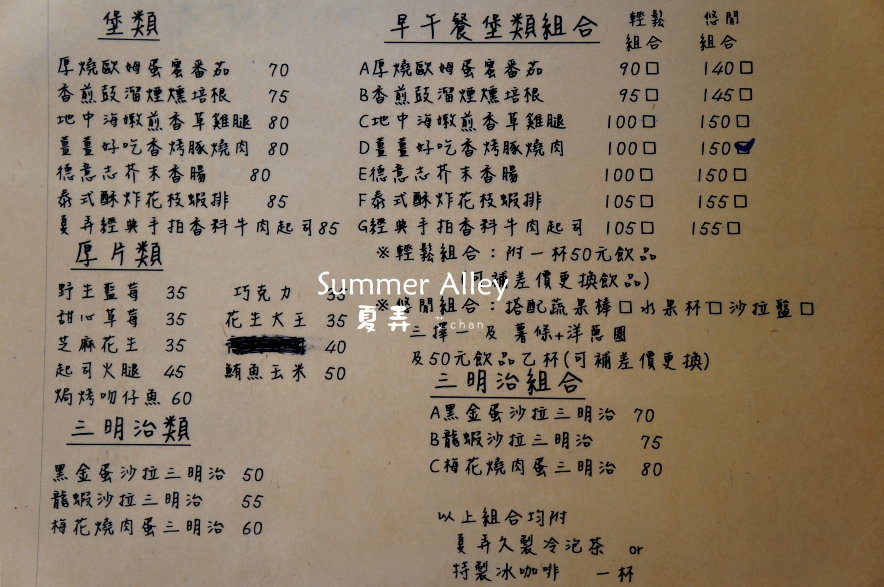 堡類
厚燒歐姆蛋蜜番茄 70
香煎豉溜煙燻培根 75
地中海嫩煎香草雞腿 80
薑薑好吃香烤豚燒肉 80
德意志芥末香腸 80
泰式酥炸花枝蝦排 85
夏弄經典手拍香料牛肉起司 85
厚片類
野生藍莓 35 巧克力 35
甜心草莓 35 花生大王 35
芝麻花生 35 40
起司火腿 45 鮪魚玉米 50
焗烤吻仔魚 60
三明治類
黑金蛋沙拉三明治 50
龍蝦沙拉三明治 55
梅花燒肉蛋三明治 60
早午餐堡類組合 輕鬆組合 悠閒組合
A厚燒歐姆蛋蜜番茄 90□ 140□
B香煎豉溜煙燻培根 95□ 145□
C地中海嫩煎香草雞腿 100□ 150□
D薑薑好吃香烤豚燒肉 100□ 150□
E德意志芥末香腸 100□ 150□
F泰式酥炸花枝蝦排 105□ 155□
G經典手拍香料牛肉起司 105□ 155□
※輕鬆組合：附一杯50元飲品
(可補差價更換飲品)
※悠閒組合：搭配蔬果棒□水果杯□沙拉盤□
三擇一及薯條+洋蔥圈
及50元飲品乙杯(可補差價更換)
三明治組合
A黑金蛋沙拉三明治 70
B龍蝦沙拉三明治 75
C梅花燒肉蛋三明治 80
以上組合均附
夏弄久製冷泡茶 or
特製冰咖啡 一杯
Summer Alley
夏弄
chan